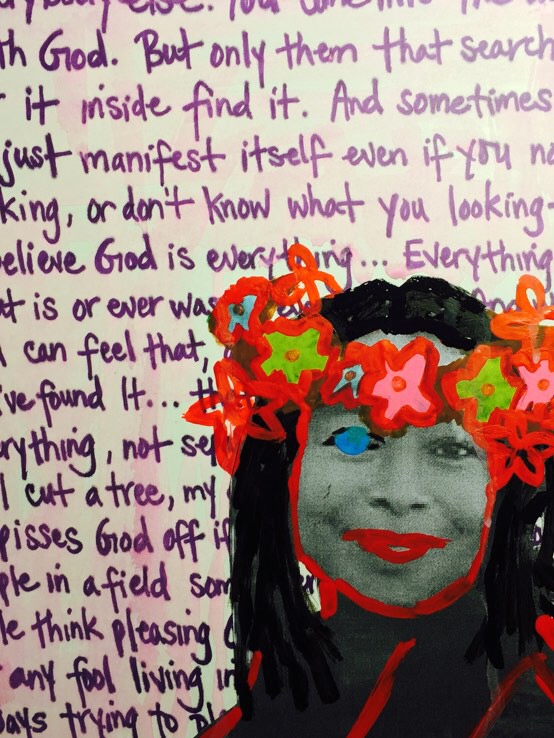 else. You
th God. But only them that search
it inside find it. And sometimes
just manifest itself even if you no
king, or don't know what you looking
elieve God is everything... Everything
at is or ever was
I can feel that,
've found It...
rything, not se
I cut a tree, my
pisses God off if
ple in a field som
le think pleasing
any fool living in
ays trying to ple